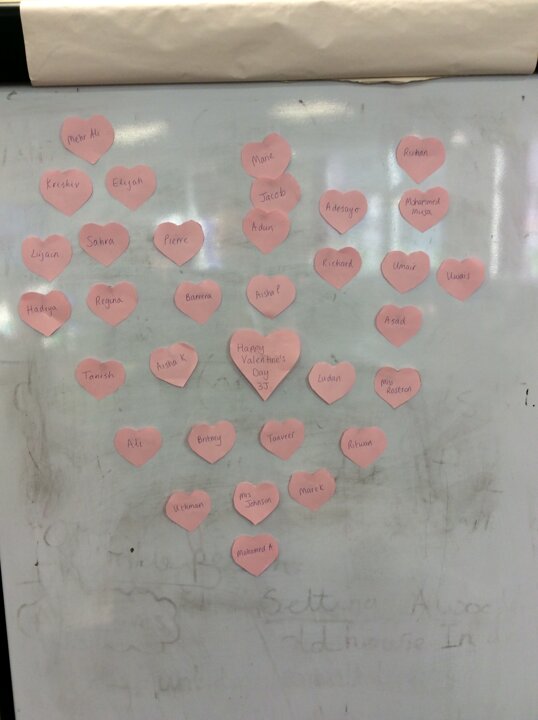 Mehr Ali
Marie
Ruman
Keeshiv
Eliyah
Jacob
Adesayo
Mohammed
Musa
Adun
Lujain
Sahra
Pierre
Richard
Umair
Uwais
Hadiya
Regina
Bareera
Aisha P
Asad
Happy
Valentine's
Day
3J
Tanish
Aisha K
Ludan
Miss
Rostron
Ali
Britney
Tanveer
Ridwan
Uthman
Mrs
Johnson
Marek
Mohamed A
Setting A
old house In